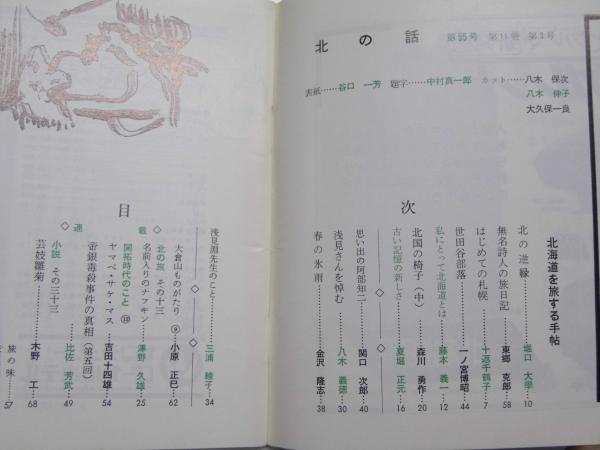 北の話 第55号 第11巻 第3号
表紙……谷口 一芳 題字……中村真一郎 カット……八木 保次
八木 伸子
大久保一良
目 次
北海道を旅する手帖
北の逆縁……堀口 大學…10
無名詩人の旅日記……東郷 克郎…58
はじめての札幌……十返千鶴子…7
世田谷部落……一ノ宮博昭…44
私にとって北海道とは……藤本 義一…12
北国の椅子(中)……森川 勇作…20
古い記憶の新しさ……夏堀 正元…16
思い出の阿部知二……関口 次郎…40
浅見さんを悼む……八木 義徳…30
春の氷雨……金沢 隆志…38
浅見淵先生のこと……三浦 綾子…34
連載
大倉山ものがたり ⑨……小原 正巳…62
北の旅 その十三
名前入りのナフキン……澤野 久雄…25
開拓時代のこと ⑬
ヤマベ・サケ・マス……吉田十四雄…54
帝銀毒殺事件の真相(第五回)……比佐 芳武…49
小説 その三十三
芸妓雛菊……木野 工…68
旅の味……57